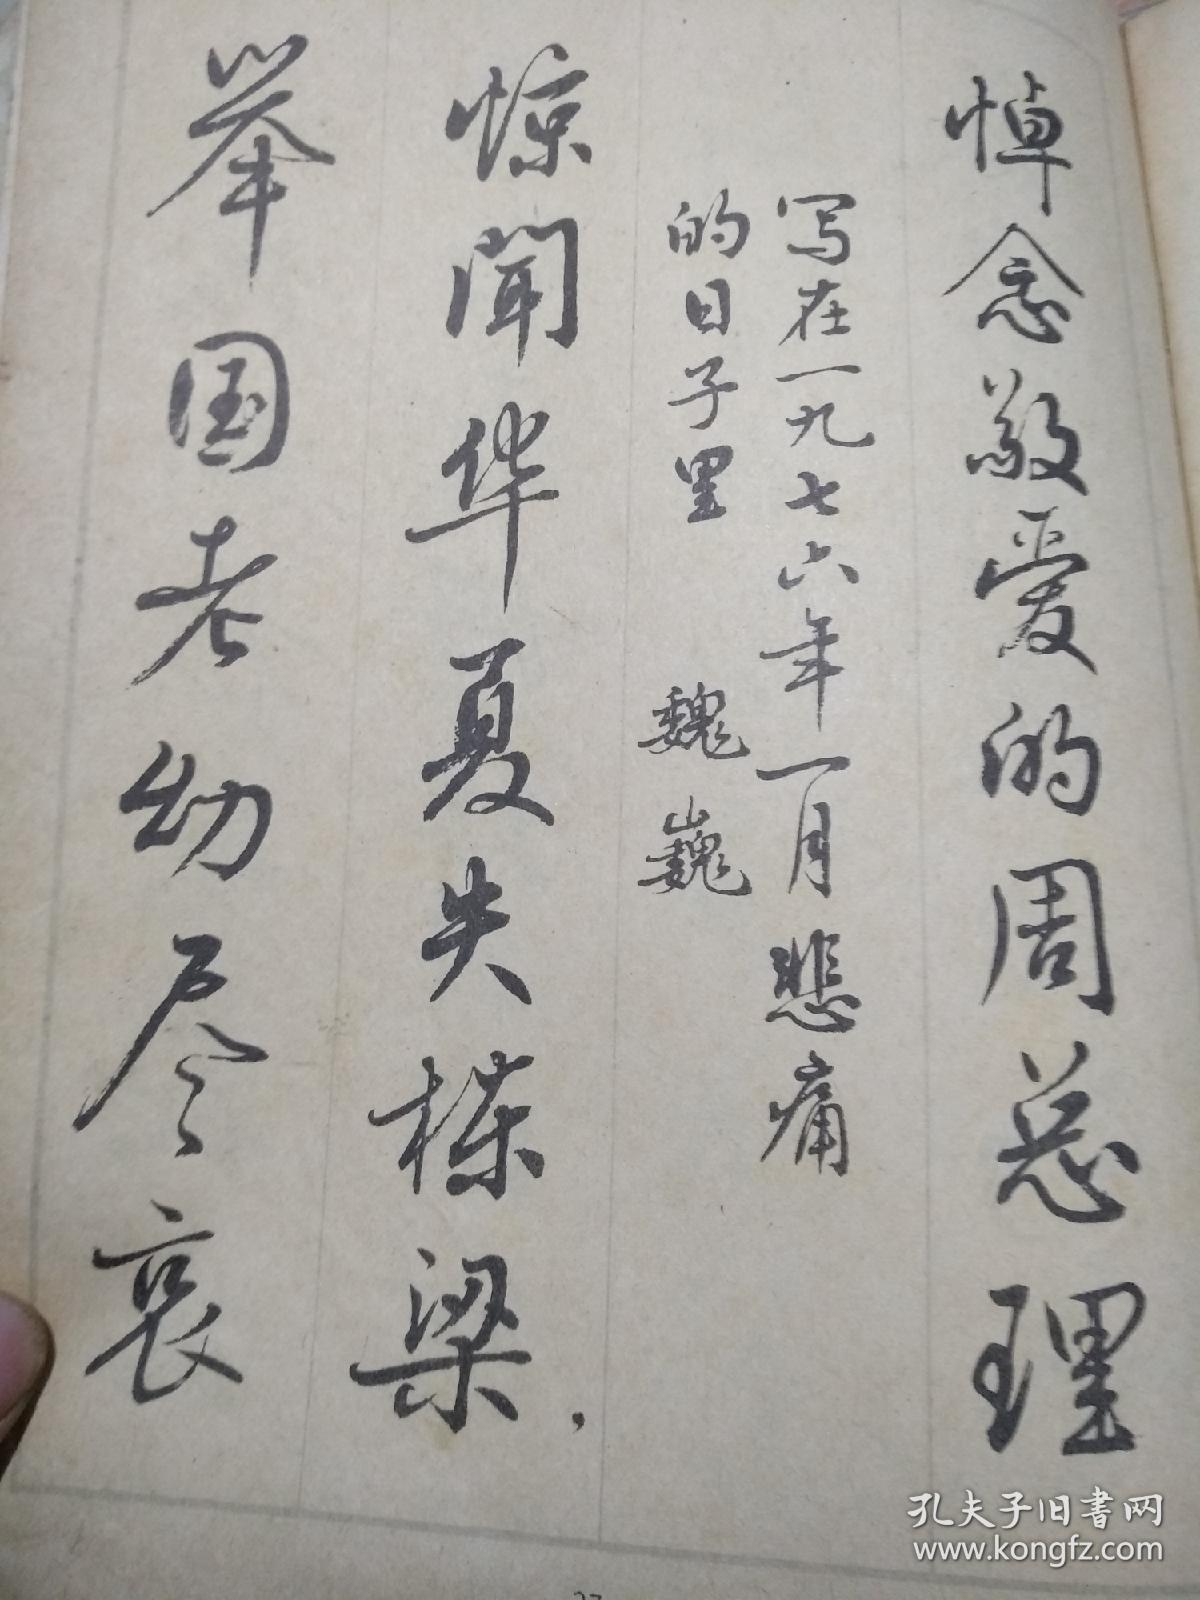 悼念敬爱的周总理
写在一九七六年一月悲痛
的日子里 魏巍
惊闻华夏失栋梁，
举国老幼尽哀
孔夫子旧书网
www.kongfz.com